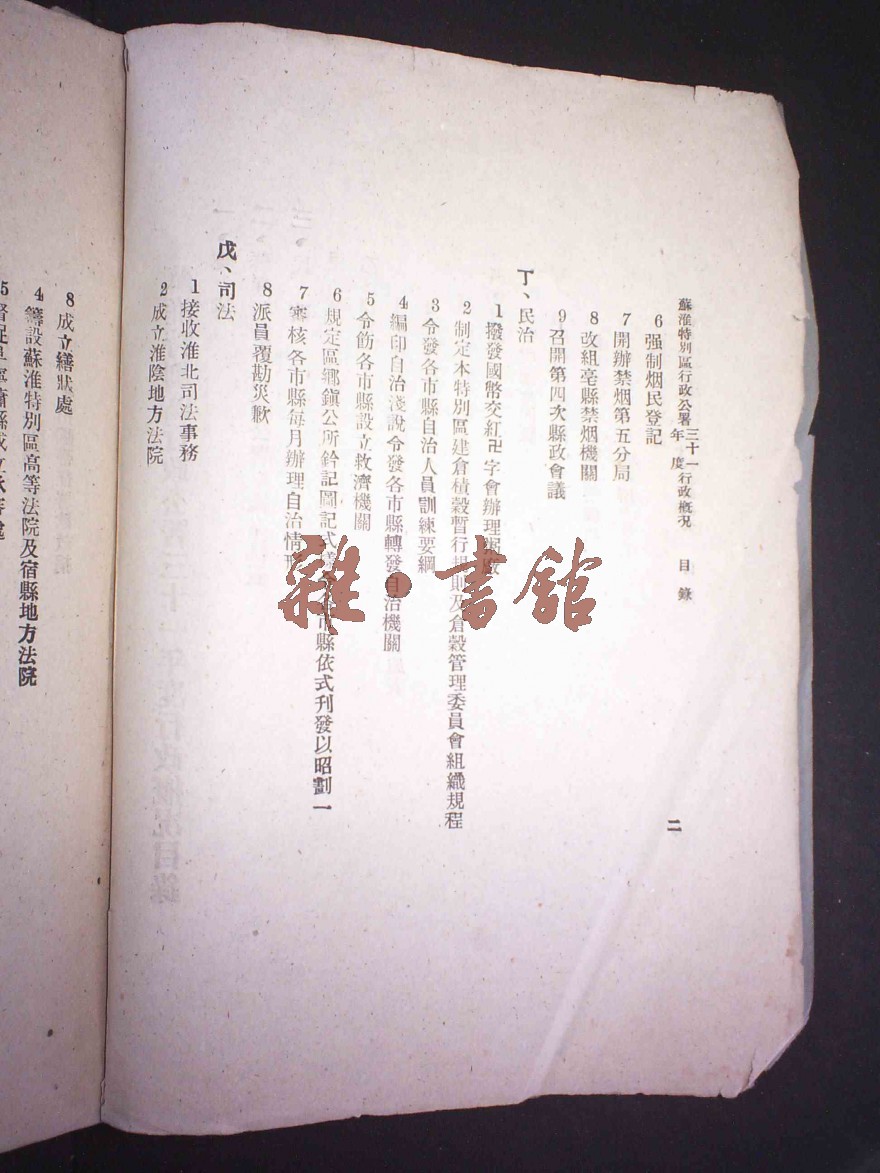 蘇淮特別區行政公署三十一年度行政概況 目錄
二
6 强制烟民登記
7 開辦禁烟第五分局
8 改組亳縣禁烟機關
9 召開第四次縣政會議
丁、民治
1 撥發國幣交紅卍字會辦理粥廠
2 制定本特別區建倉積穀暫行規則及倉穀管理委員會組織規程
3 令發各市縣自治人員訓練要綱
4 編印自治淺說令發各市縣轉發自治機關
5 令飭各市縣設立救濟機關
6 規定區鄉鎮公所鈐記圖記式樣 市縣依式刊發以昭劃一
7 審核各市縣每月辦理自治情形
8 派員覆勘災歉
戊、司法
1 接收淮北司法事務
2 成立淮陰地方法院
8 成立繕狀處
4 籌設蘇淮特別區高等法院及宿縣地方法院
5 督促
雜·書館